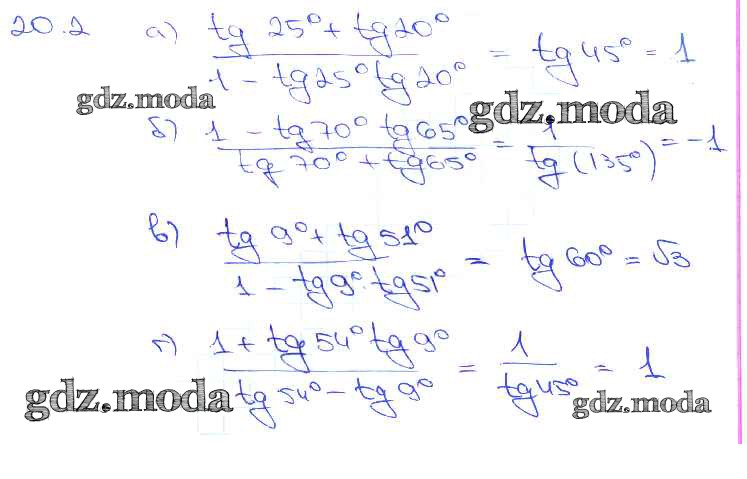 20.2 а) (tg 25° + tg 20°) / (1 - tg 25° tg 20°) = tg 45° = 1
gdz.moda
gdz.moda
б) (1 - tg 70° tg 65°) / (tg 70° + tg 65°) = 1 / tg (135°) = -1
в) (tg 9° + tg 51°) / (1 - tg 9° · tg 51°) = tg 60° = √3
г) (1 + tg 54° tg 9°) / (tg 54° - tg 9°) = 1 / tg 45° = 1
gdz.moda
gdz.moda